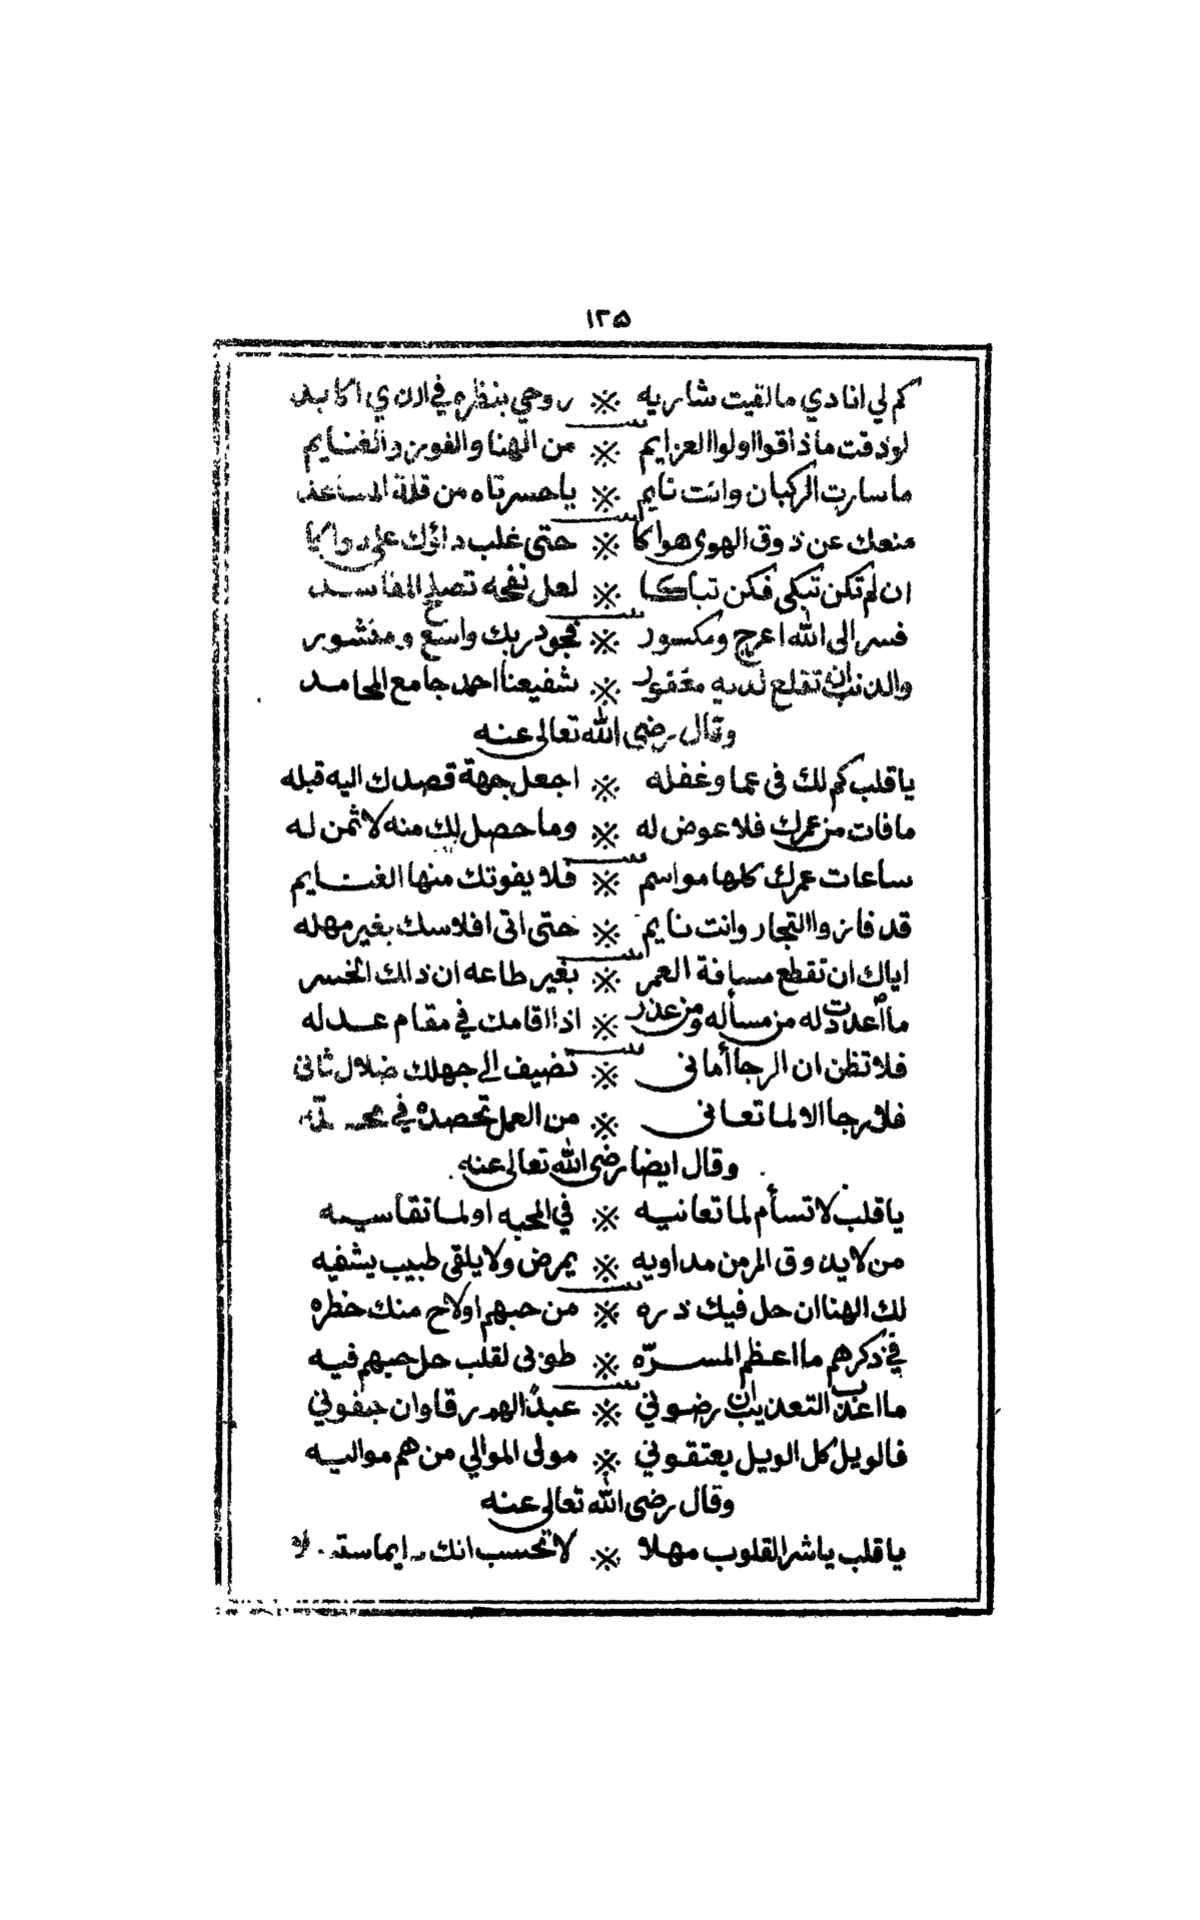 ١٢٥
كم لي انادي مالقيت شاريه ※ روحي بنظره في
لوذقت ماذاقوا اولوا العزايم ※ من الهنا والفوز والغنايم
ماسارت الركبان وانت نايم ※ ياحسرتاه من قلة المساعد
منعك عن ذوق الهوى هواكا ※ حتى غلب داؤك على دواكا
ان لم تكن تبكي فكن تباكا ※ لعل نفحه تصلح المفاسد
فسر الى الله اعرج ومكسور ※ فجود ربك واسع ومنشور
والذنب ان تقلع لديه مغفور ※ شفيعنا احمد جامع المحامد
وقال رضى الله تعالى عنه
ياقلب كم لك في عما وغفله ※ اجعل جهة قصدك اليه قبله
مافات من عمرك فلا عوض له ※ وماحصل لك منه لاثمن له
ساعات عمرك كلها مواسم ※ فلا يفوتك منها الغنايم
قد فازوا التجار وانت نايم ※ حتى اتى افلاسك بغير مهله
اياك ان تقطع مسافة العمر ※ بغير طاعه ان ذالك الخسر
ما أعددت له من مسأله ومن عذر ※ اذا اقامك في مقام عدله
فلا تظن ان الرجا أماني ※ تضيف الى جهلك ضلال ثاني
فلا رجا الا لما تعاني ※ من العمل تحصده في
وقال ايضا رضى الله تعالى عنه
ياقلب لاتسأم لما تعانيه ※ في المحبه اولما تقاسيه
من لايذوق المر من مداويه ※ يمرض ولا يلقى طبيب يشفيه
لك الهنا ان حل فيك ذره ※ من حبهم اولاح منك خطره
في ذكرهم ما اعظم المسرّه ※ طوبى لقلب حل حبهم فيه
ما اعذب التعذيب ان رضوني ※ عبدًا لهم رقا وان جفوني
فالويل كل الويل يعتقوني ※ مولى الموالي من هم مواليه
وقال رضى الله تعالى عنه
ياقلب ياشر القلوب مهلا ※ لاتحسب انك